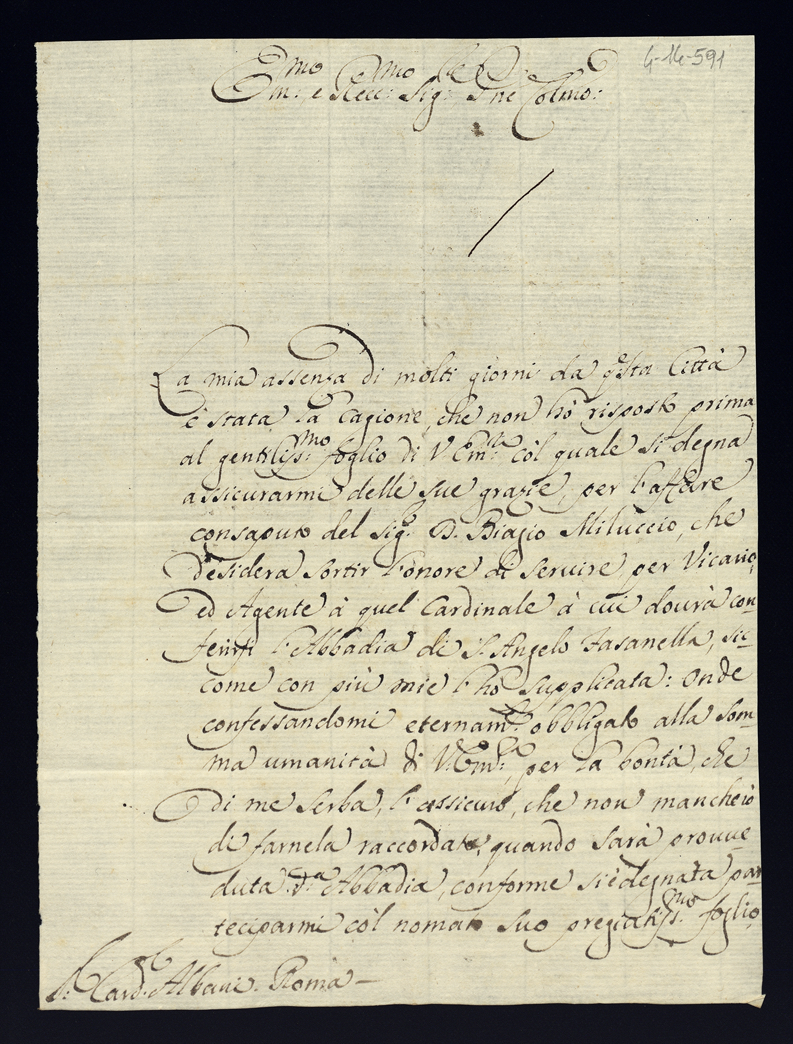 4-14-591
Em:mo e Rev: mo Sig: re P.ne Colmo:
La mia assenza di molti giorni da q.sta Città
è stata la cagione, che non hò risposto prima
al gentiliss:mo foglio di V. Em:za còl quale si degna
assicurarmi delle sue grazie, per l'affare
consaputo del Sig:r D. Biagio Miluccio, che
desidera sortir l'onore di servire per Vicario,
ed Agente à quel Cardinale à cui dourà con-
ferirsi l'Abbadia di S. Angelo Fasanella, sic-
come con più mie l'hò supplicata: Onde
confessandomi eternam:te obbligato alla som-
ma umanità di V. Em:za, per la bontà, che
di me serba, l'assicuro, che non mancherò
di farnela raccordata, quando sarà prouue-
duta d:a Abbadia, conforme si è degnata par-
teciparmi còl nomato suo pregiatiss:mo foglio,
S:r Card:le Albani. Roma –